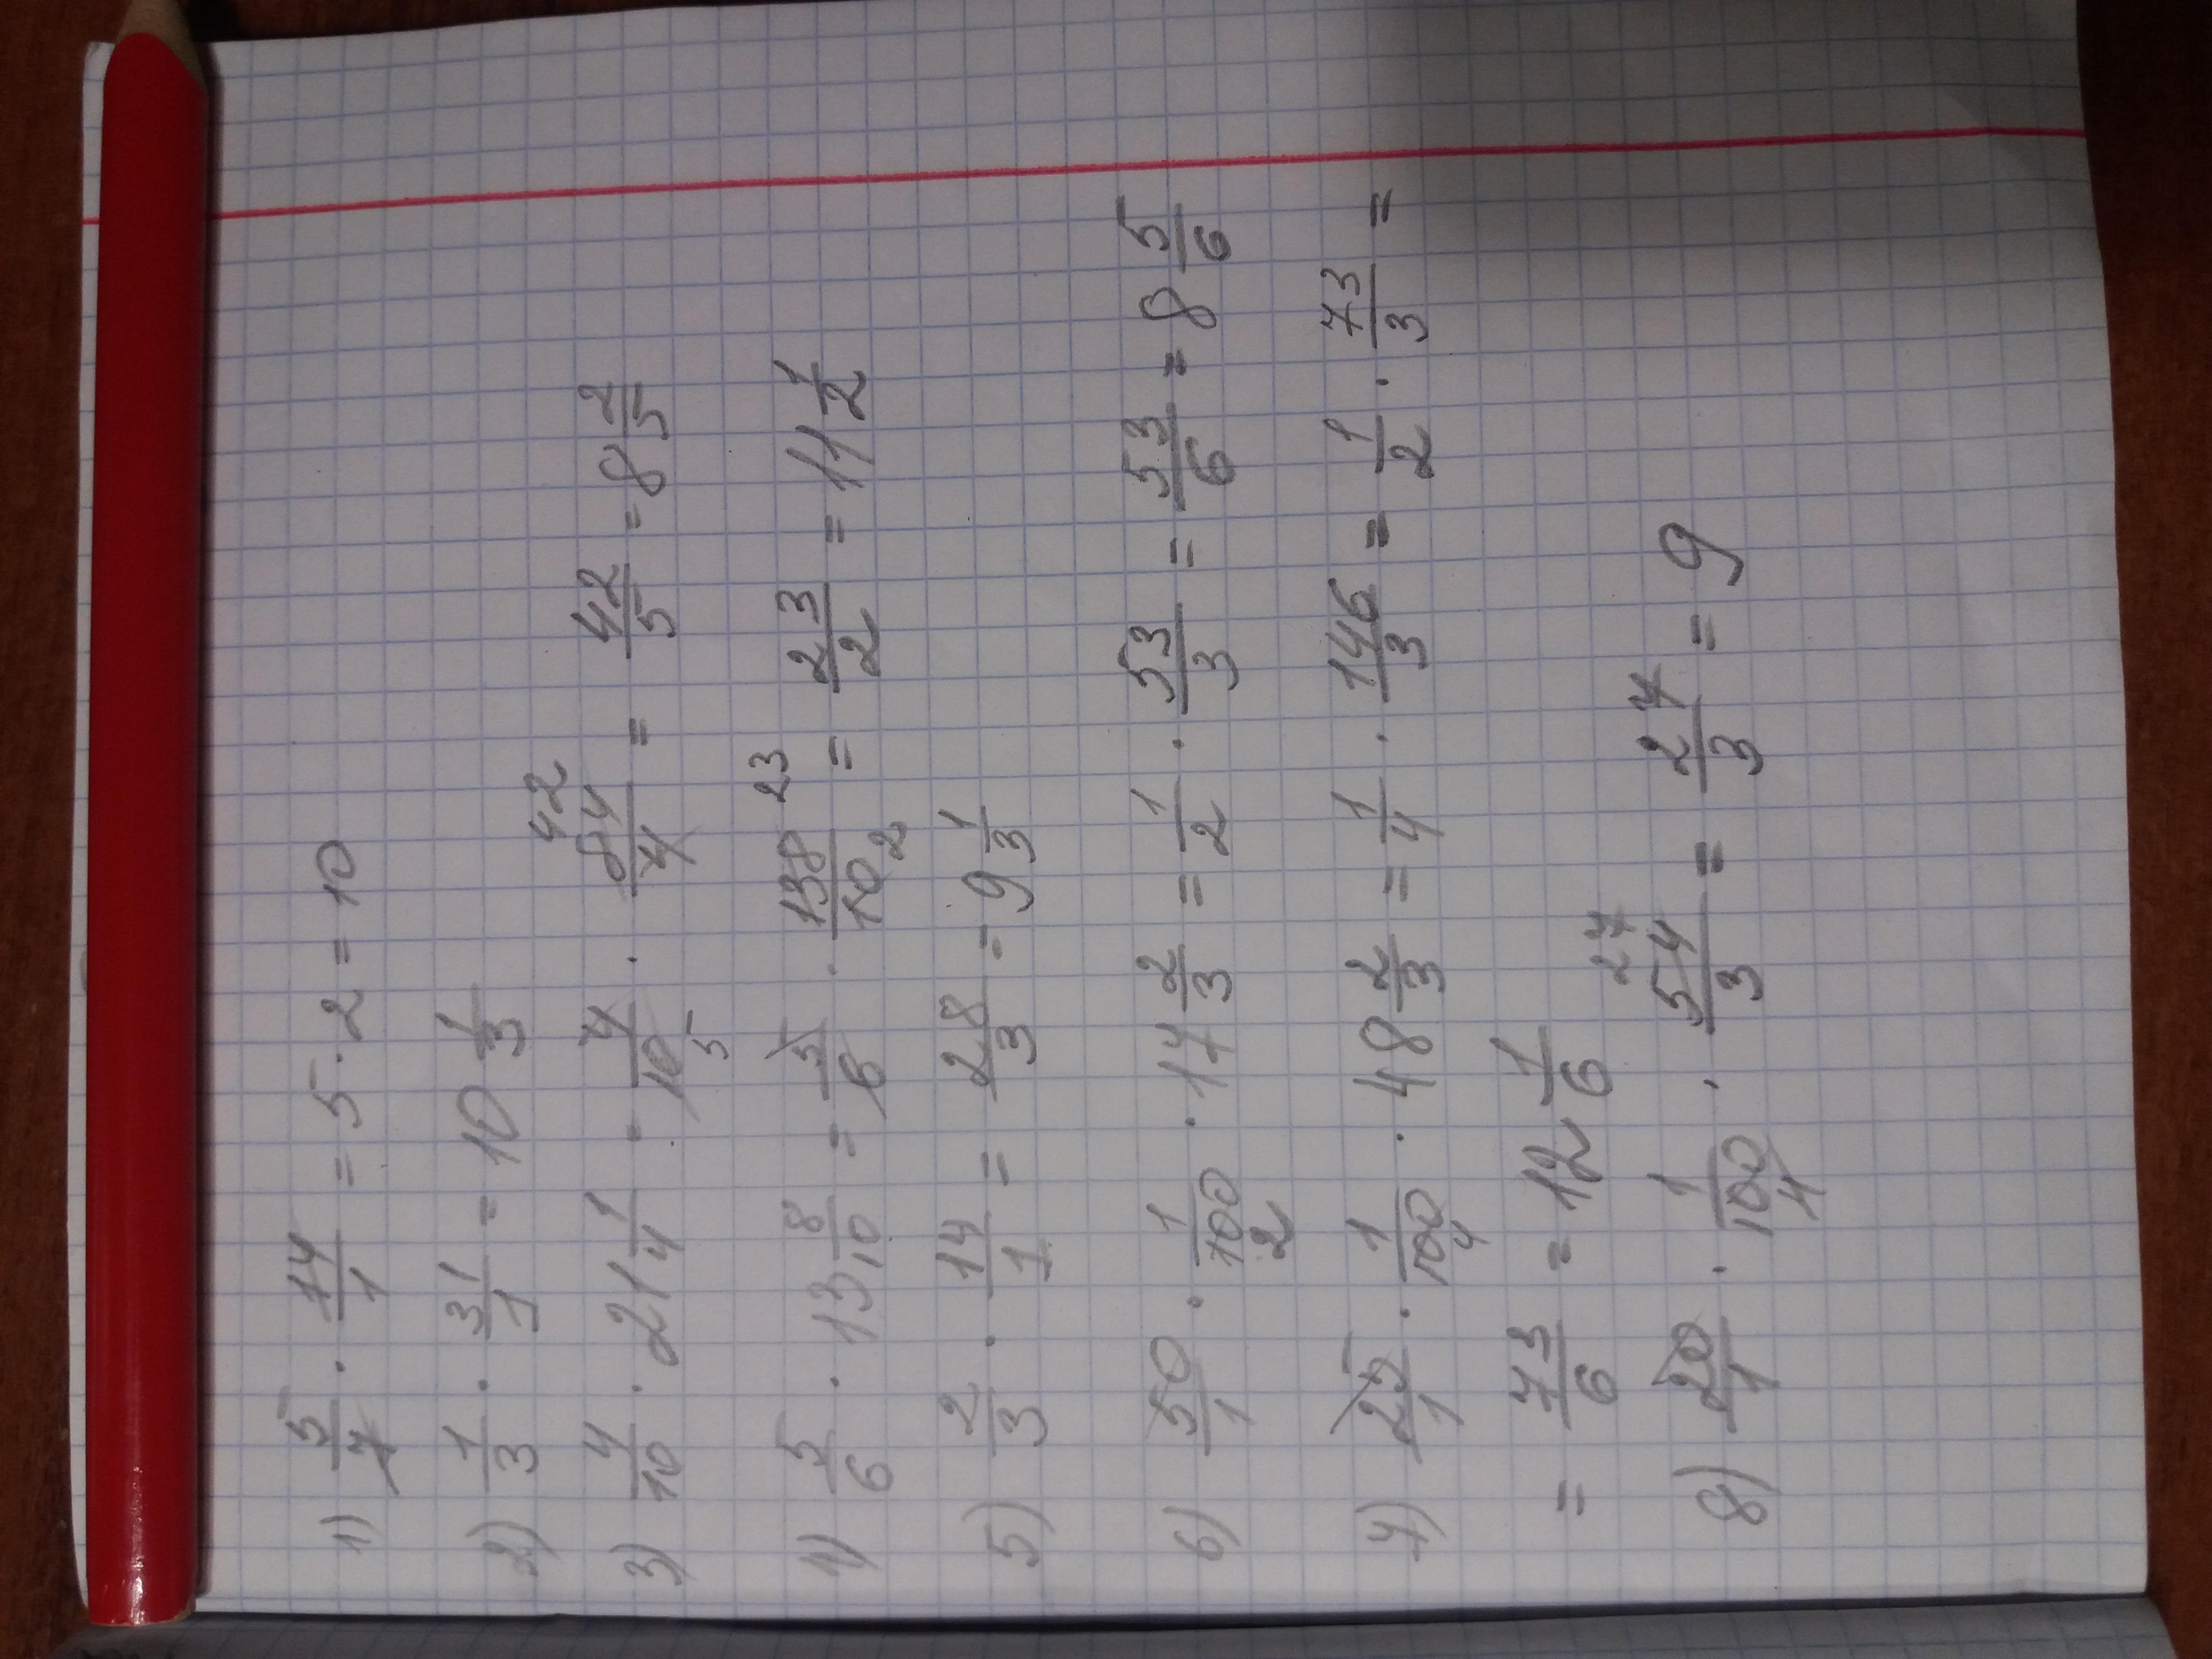 1) 5/7 · 14/1 = 5 · 2 = 10
2) 1/3 · 31/1 = 10 1/3
3) 4/10 · 21 1/4 = 4/10 5 · 84/4 42 = 42/5 = 8 2/5
4) 5/6 · 13 8/10 = 5/6 · 138/10 23 2 = 23/2 = 11 1/2
5) 2/3 · 14/1 = 28/3 = 9 1/3
6) 50/1 · 1/100 2 · 17 2/3 = 1/2 · 53/3 = 53/6 = 8 5/6
7) 25/1 · 1/100 4 · 48 2/3 = 1/4 · 146/3 = 1/2 · 73/3 =
= 73/6 = 12 1/6
8) 20/1 · 1/100 4 · 54/3 27 = 27/3 = 9